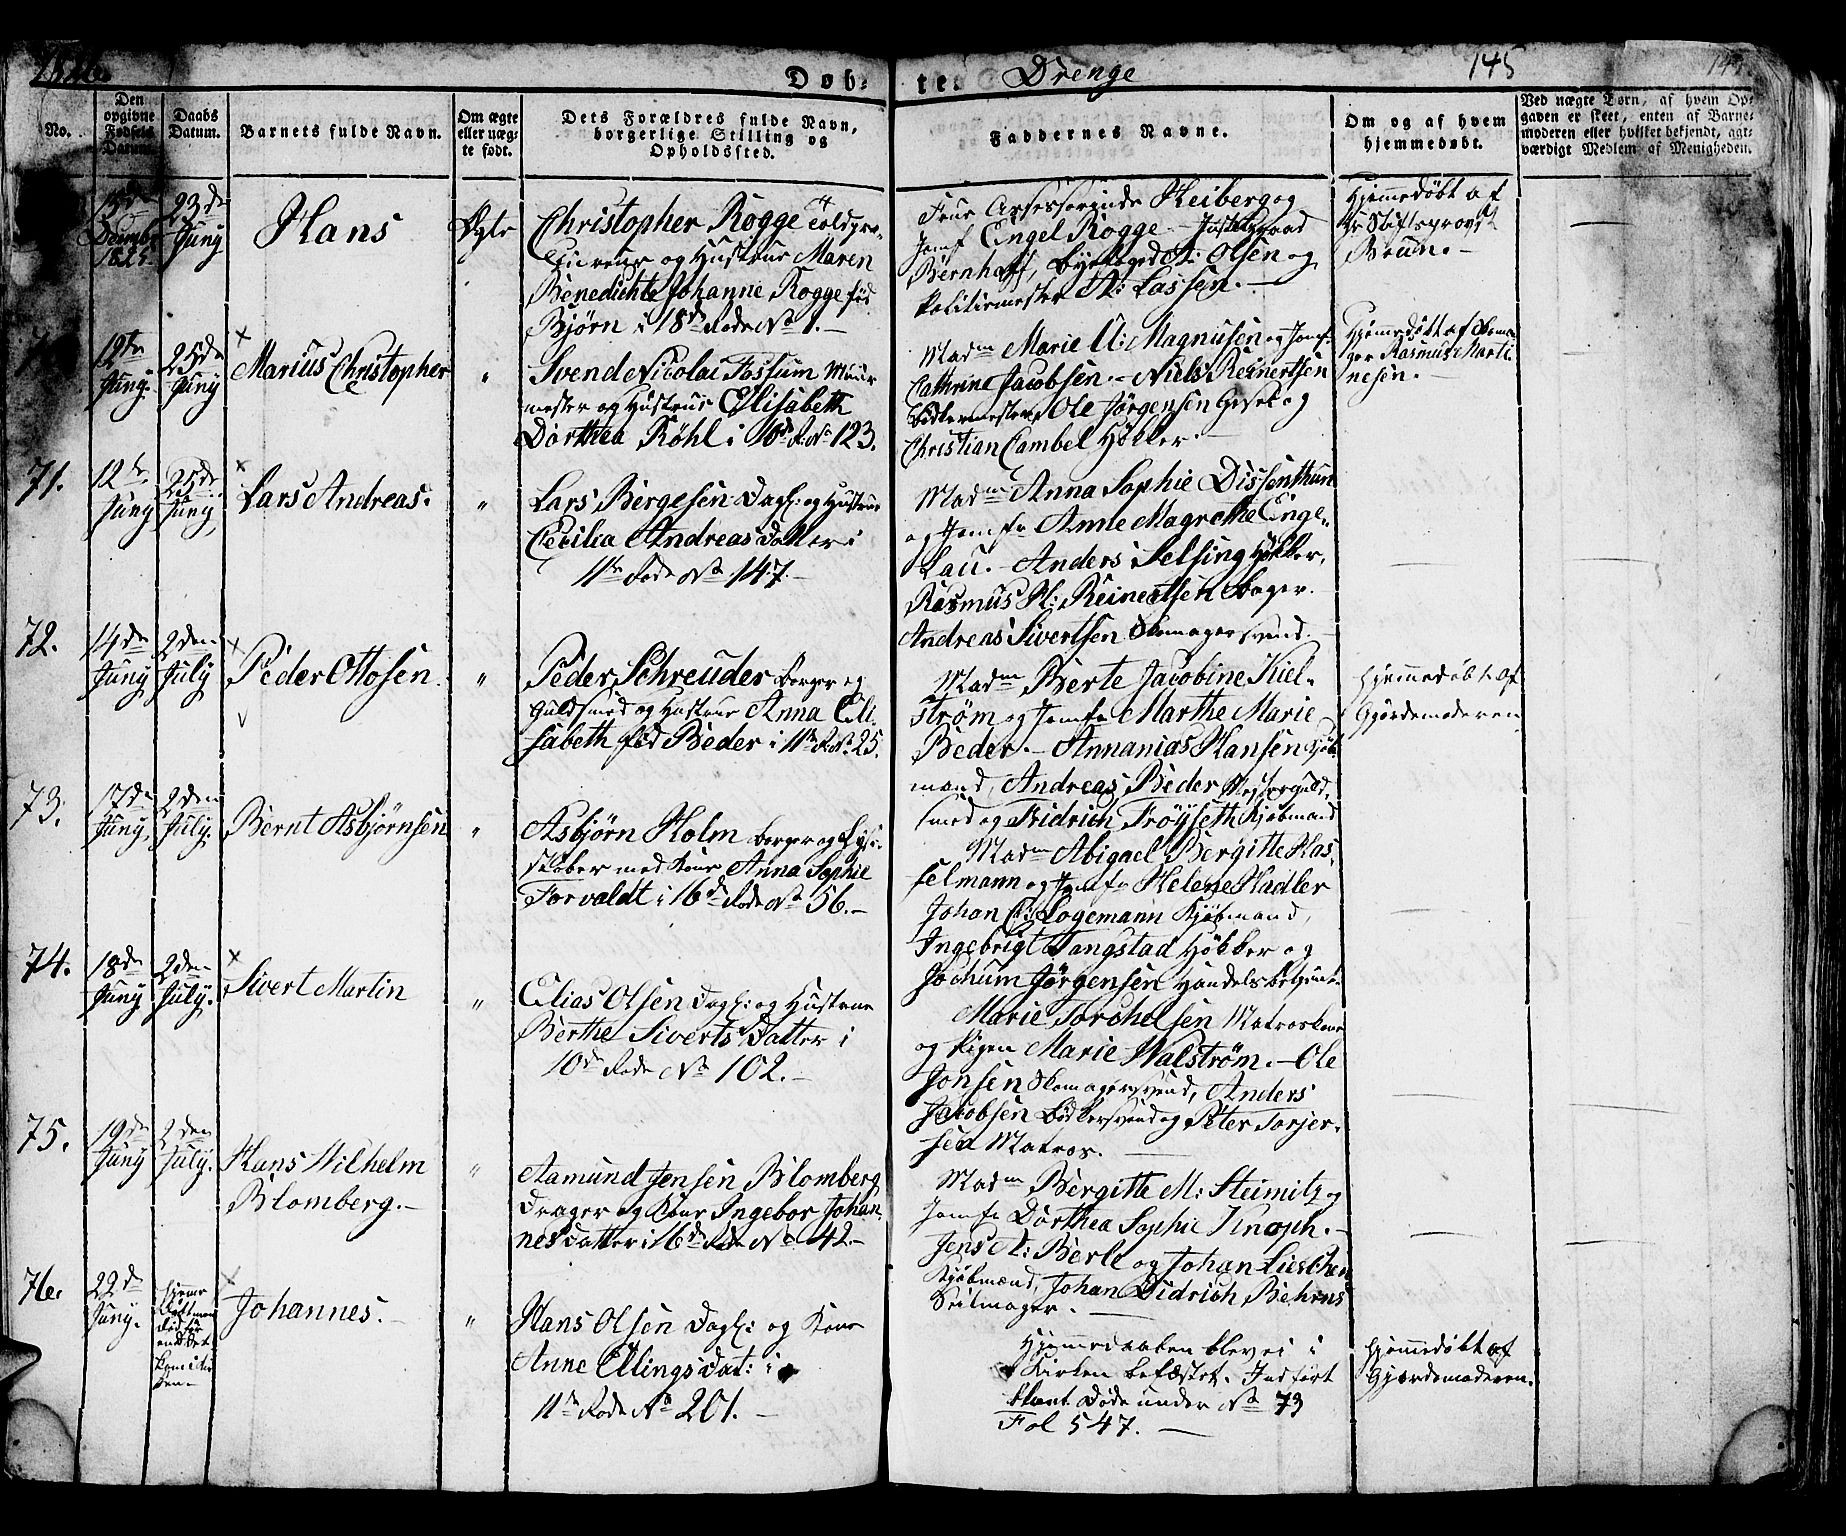 1826.
Døb-te Drenge
145
No.
Den opgivne Fødsels Datum.
Daabs Datum.
Barnets fulde Navn.
Om ægte eller uægte født.
Dets Forældres fulde Navn, borgerlige Stilling og Opholdssted.
Faddernes Navne.
Om og af hvem hjemmedøbt.
Ved uægte Børn, af hvem Opgaven er skeet, enten af Barnemoderen eller hvilket bekjendt, agtværdigt Medlem af Menigheden.
Decembr 1825.
23de Juny
Hans
Ægte
Christopher Rogge
og Hustrue Maren
Benedichte Johanne Rogge fød
Björn i 18de Rode No 1.
Frue Assessorinde Heiberg og
Jomf Engel Rogge - Justitzraad
Bernhoft, Byefoged A: Olsen og
Politiemester A: Lassen.
Hjemmedøbt af
Hr Stiftsprovst
Bruun.
12te Juny.
25de Juny
Marius Christopher
"
Svend Nicolai Fossum Muur
mester og Hustrue Elisabeth
Dorthea Röhl i 10de R. No 123.
Madm Marie U: Magnusen og Jomf.
Cathrine Jacobsen. - Niels Reinertsen
Ole Jörgensen Giæsek og
Christian Cambel Høkker.
Hjemmedøbt af Skoma-
ger Rasmus Marti-
nesen.
71.
12te Juny
25de Juny
Lars Andreas.
"
Lars Bergesen Dagl: og Hustrue
Cecilia Andreasdatter i
11te Rode No 147.
Madm Anna Sophie Dissenthun
og Jomfr Anne Magrethe Enge-
Lau. - Anders Selsing Høkker,
Rasmus H: Reinertsen Bager.
Andreas Sivertsen Skomagersvend.
72.
14de Juny
2den July
Peder Ottosen
"
Peder Schreuder Borger og
Guldsmed og Hustrue Anna Eli-
sabeth fød Beder i 11te R. No 25.
Madm Berte Jacobine Kiel-
ström og Jomfr Marthe Marie
Beder. - Annanias Hansen Kjøb-
mand, Andreas Beder Mesterguld-
smed og Fridrich Tröyseth Kjøbmand
Hjemmedøbt af
Gjordemoderen
73.
17de Juny.
2den July.
Bernt Asbjørnsen
"
Asbjørn Holm Borger og Lyse-
støber med Kone Anna Sophie
Forvaldt i 16de Rode No 56.
Madm Abigael Bergitte Has-
selmann og Jomfr Helene Hadler
Johan C: Logemann Kjøbmand,
Ingebrigt Tangstad Høkker og
Jochum Jörgensen Handelsbetjent.
74.
18de Juny
2den July.
Sivert Martin
"
Elias Olsen Dagl: og Hustrue
Berthe Siverts Datter i
10de Rode No 102.
Marie Torchelsen Matroskone
og Pigen Marie Walström. - Ole
Jonsen Skomagersvend, Anders
Jacobsen Bødkersvend og Peter Torjer-
sen Matros.
75.
19de Juny
2den July.
Hans Wilhelm
Blomberg.
"
Aamund Jensen Blomberg
Drager og Kone Ingebor Johan-
nesdatter i 16de Rode No 42.
Madm Bergitte M: Steimitz og
Jomfr Dorthea Sophie Knoph. -
Jens A: Berle og Johan Lieschen
Kjøbmænd, Johan Didrich Behrens
Seilmager.
76.
22de Juny.
Hjemmedøbt
Johannes.
"
Hans Olsen Dagl: og Kone
Anne Ellingsdat: i
11te Rode No 201.
Hjemmedaaben blev ei i
Kirken befæstet. Indført
blant Døde under No 73
Fol 547.
Hjemmedøbt af
Gjordemoderen.